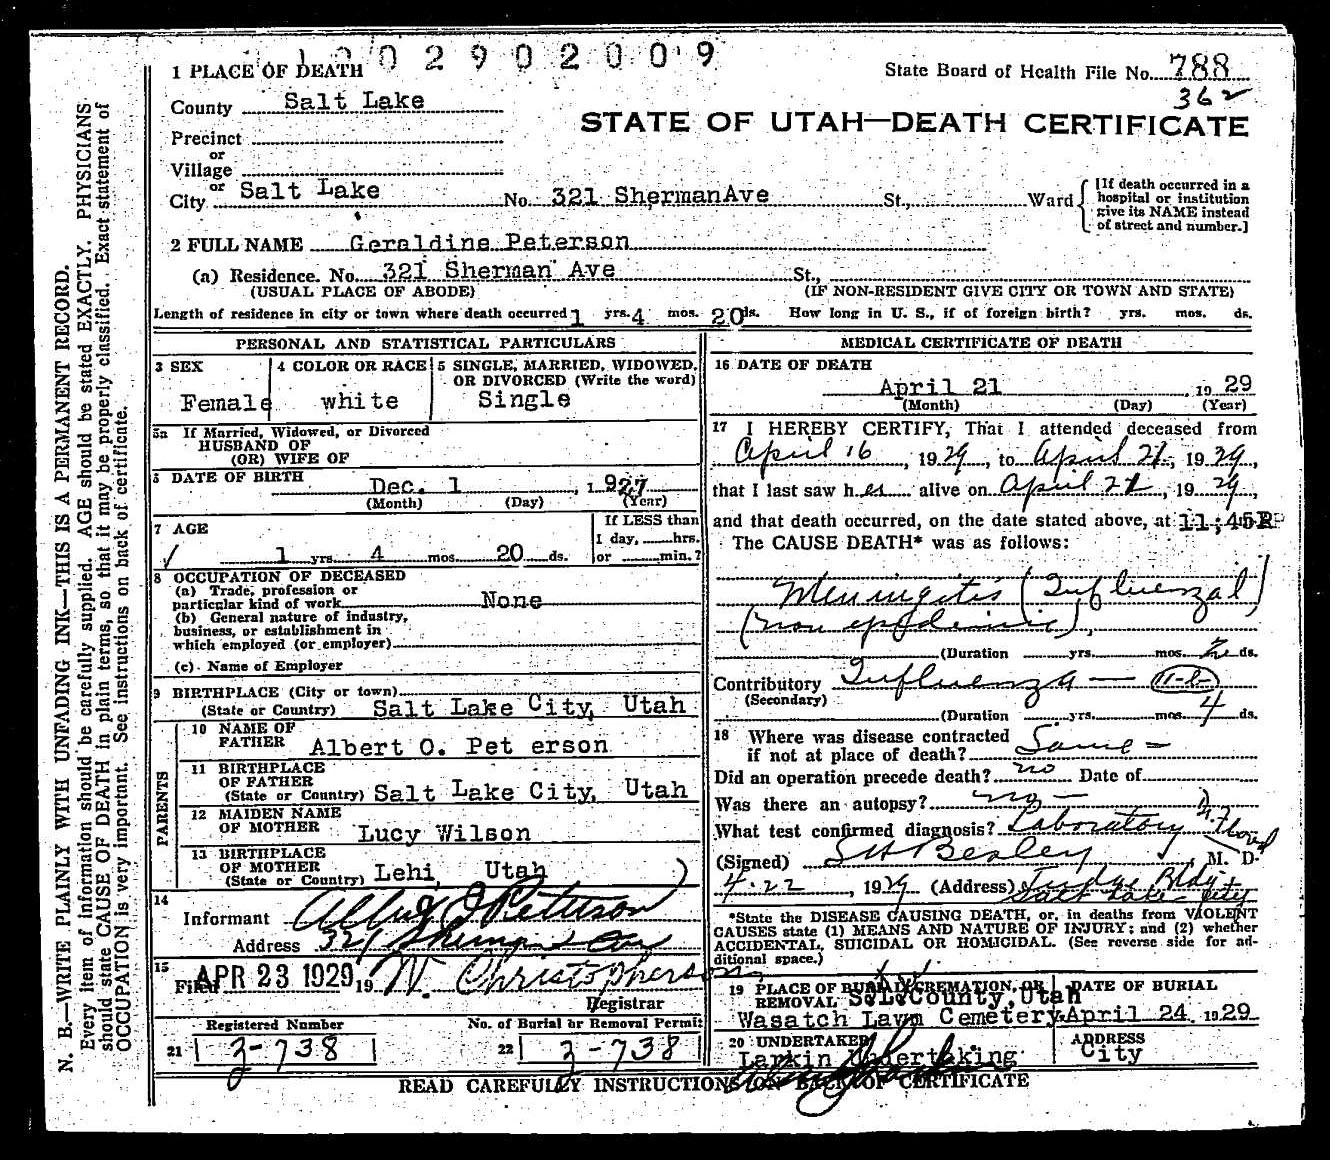 1202902009
1 PLACE OF DEATH
State Board of Health File No. 788
County Salt Lake
362
STATE OF UTAH—DEATH CERTIFICATE
Precinct
or
Village
or
City Salt Lake No. 321 ShermanAve St., Ward
[If death occurred in a
hospital or institution
give its NAME instead
of street and number.]
2 FULL NAME Geraldine Peterson
(a) Residence. No. 321 Sherman Ave St.,
(USUAL PLACE OF ABODE) (IF NON-RESIDENT GIVE CITY OR TOWN AND STATE)
Length of residence in city or town where death occurred 1 yrs. 4 mos. 20 ds. How long in U. S., if of foreign birth? yrs. mos. ds.
PERSONAL AND STATISTICAL PARTICULARS
3 SEX
Female
4 COLOR OR RACE
white
5 SINGLE, MARRIED, WIDOWED,
OR DIVORCED (Write the word)
Single
5a If Married, Widowed, or Divorced
HUSBAND OF
(OR) WIFE OF
DATE OF BIRTH
Dec. 1, 1927
(Month) (Day) (Year)
7 AGE
1 yrs. 4 mos. 20 ds.
If LESS than
1 day, hrs.
or min.?
8 OCCUPATION OF DECEASED
(a) Trade, profession or
particular kind of work None
(b) General nature of industry,
business, or establishment in
which employed (or employer)
(c) Name of Employer
9 BIRTHPLACE (City or town)
(State or Country) Salt Lake City, Utah
PARENTS
10 NAME OF
FATHER Albert O. Pet erson
11 BIRTHPLACE
OF FATHER
(State or Country) Salt Lake City, Utah
12 MAIDEN NAME
OF MOTHER Lucy Wilson
13 BIRTHPLACE
OF MOTHER
(State or Country) Lehi, Utah
14
Informant Peterson
Address 321 Sherman Ave
15
Filed APR 23 1929, 19 W. Christopherson
Registrar
Registered Number No. of Burial or Removal Permit
21 2-738 22 2-738
MEDICAL CERTIFICATE OF DEATH
16 DATE OF DEATH
April 21, 1929
(Month) (Day) (Year)
17 I HEREBY CERTIFY, That I attended deceased from
April 16, 1929, to April 21, 1929,
that I last saw her alive on April 21, 1929,
and that death occurred, on the date stated above, at 11;45P
The CAUSE DEATH* was as follows:
Meningitis (Influenzal)
(non epidemic),
(Duration yrs. mos. 2 ds.
Contributory Influenza — 11-B
(Secondary)
(Duration yrs. mos. 4 ds.
18 Where was disease contracted
if not at place of death? Same -
Did an operation precede death? no Date of
Was there an autopsy? no -
What test confirmed diagnosis? Laboratory
(Signed) M. D.
4-22, 1929 (Address) Judge Bldg
Salt Lake City
*State the DISEASE CAUSING DEATH, or, in deaths from VIOLENT
CAUSES state (1) MEANS AND NATURE OF INJURY; and (2) whether
ACCIDENTAL, SUICIDAL OR HOMICIDAL. (See reverse side for ad-
ditional space.)
19 PLACE OF BURIAL, CREMATION, OR
REMOVAL S.L. County, Utah
Wasatch Lawn Cemetery
DATE OF BURIAL
April 24, 1929
20 UNDERTAKER
Larkin Undertaking
ADDRESS
City
READ CAREFULLY INSTRUCTIONS ON BACK OF CERTIFICATE
N. B.—WRITE PLAINLY WITH UNFADING INK—THIS IS A PERMANENT RECORD.
Every item of information should be carefully supplied. AGE should be stated EXACTLY. PHYSICIANS
should state CAUSE OF DEATH in plain terms, so that it may be properly classified. Exact statement of
OCCUPATION is very important. See instructions on back of certificate.